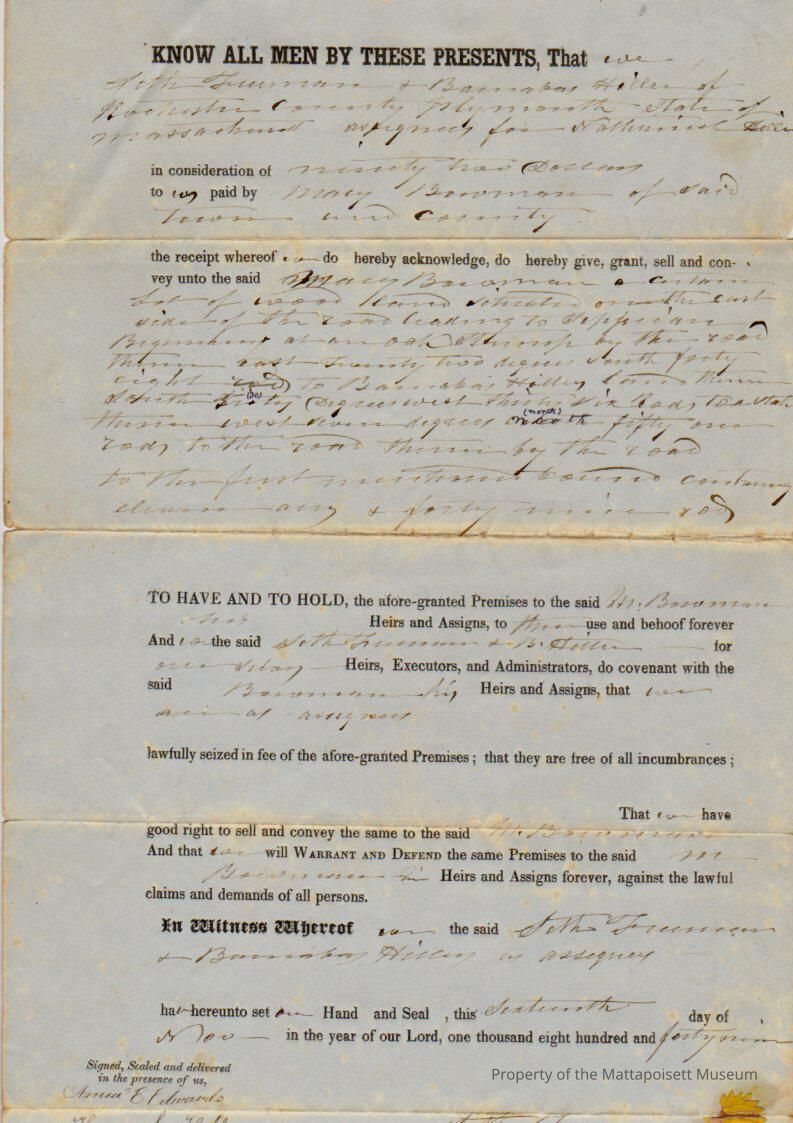 KNOW ALL MEN BY THESE PRESENTS, That we
Seth Freeman & Barnabas Hiller of
Rochester County Plymouth State of
Massachusett assignees for Nathaniel Hiller
in consideration of ninety two Dollars
to us paid by Mary Bowman of said
Town and County
the receipt whereof we do hereby acknowledge, do hereby give, grant, sell and con-
vey unto the said Mary Bowman a certain
Lot of wood Land situated on the east
side of the road leading to Sippican
Beginning at an oak Stump by the road
thence east Twenty two degrees south forty
eight rods to Barnabas Hilley land thence
South fifty (50) Degrees west thirty six Rods to a stake
thence west seven degrees north (north) fifty one
rods to the road thence by the road
to the first mentioned bound containing
eleven & forty nine rods
TO HAVE AND TO HOLD, the afore-granted Premises to the said M. Bowman
his Heirs and Assigns, to their use and behoof forever
And we the said Seth Freeman & B. Hiller for
our Heirs, Executors, and Administrators, do covenant with the
said Bowman his Heirs and Assigns, that we
are as assignees
lawfully seized in fee of the afore-granted Premises; that they are free of all incumbrances;
That we have
good right to sell and convey the same to the said M. Bowman
And that we will WARRANT AND DEFEND the same Premises to the said M
Bowman his Heirs and Assigns forever, against the lawful
claims and demands of all persons.
In Witness Whereof we the said Seth Freeman
& Barnabas Hilley as assignees
have hereunto set our Hand and Seal, this Sixteenth day of
Nov in the year of our Lord, one thousand eight hundred and forty nine
Signed, Sealed and delivered
in the presence of us,
E Edwards
Property of the Mattapoisett Museum